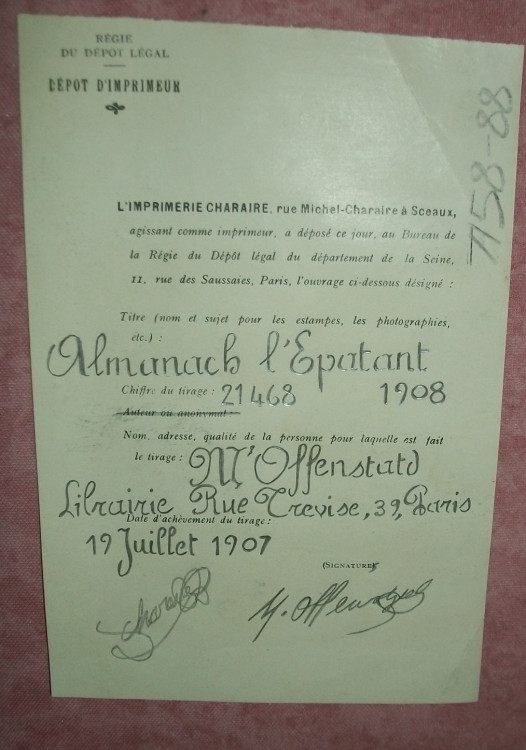 RÉGIE
DU DÉPOT LÉGAL
DÉPOT D'IMPRIMEUR
1158-88
L'IMPRIMERIE CHARAIRE, rue Michel-Charaire à Sceaux,
agissant comme imprimeur, a déposé ce jour, au Bureau de
la Régie du Dépôt légal du département de la Seine,
11, rue des Saussaies, Paris, l'ouvrage ci-dessous désigné :
Titre (nom et sujet pour les estampes, les photographies,
etc.) :
Almanach l'Epatant
Chiffre du tirage : 21468 1908
Auteur ou anonymat :
Nom, adresse, qualité de la personne pour laquelle est fait
le tirage : M'Offenstatd
Librairie Rue Trevise, 39, Paris
Date d'achèvement du tirage :
19 Juillet 1907
(SIGNATURE)